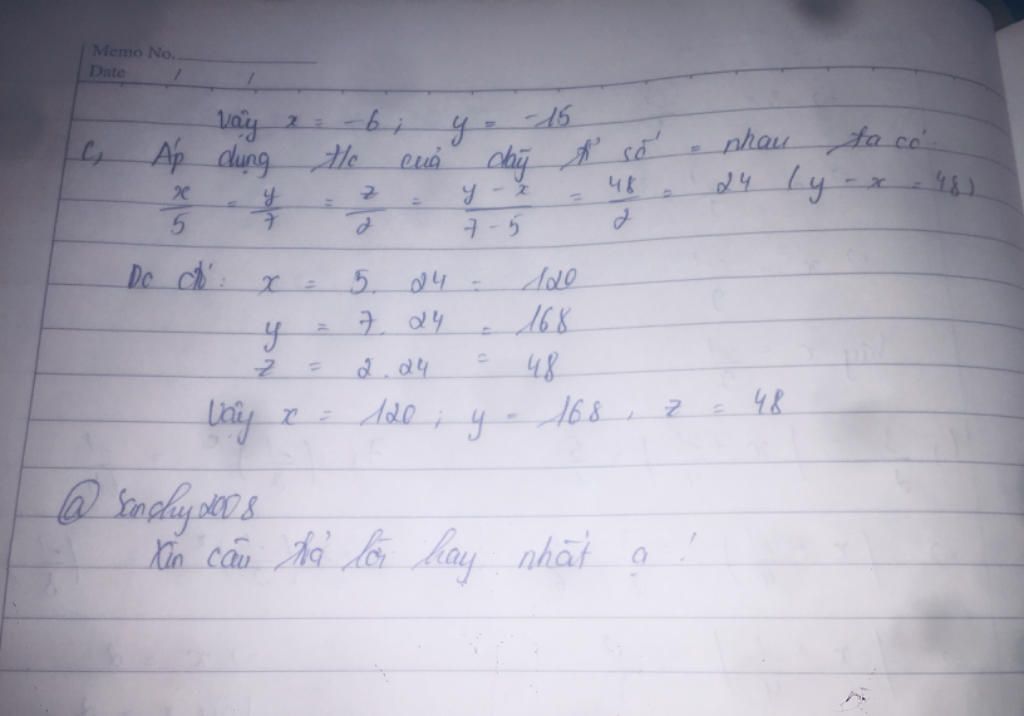 Memo No.
Date / /
Vậy x = -6 ; y = -15
c, Áp dụng t/c của dãy tỉ số = nhau ta có
x/5 = y/7 = z/2 = y - x/7 - 5 = 48/2 = 24 (y - x = 48)
Dc cđ: x = 5. 24 = 120
y = 7. 24 = 168
z = 2. 24 = 48
Vậy x = 120 ; y = 168, z = 48
Xin câu trả lời hay nhất ạ !